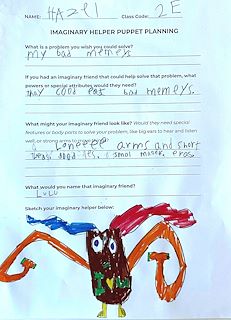 NAME: HAZEl Class Code: 2E
IMAGINARY HELPER PUPPET PLANNING
What is a problem you wish you could solve?
my bad memerys
If you had an imaginary friend that could help solve that problem, what
powers or special attributes would they need?
thay cood eat bad memerys.
What might your imaginary friend look like? Would they need special
features or body parts to solve your problem, like big ears to hear and listen
well, or strong arms to
arms and short
legs. smol
What would you name that imaginary friend?
LuLu
Sketch your imaginary helper below: